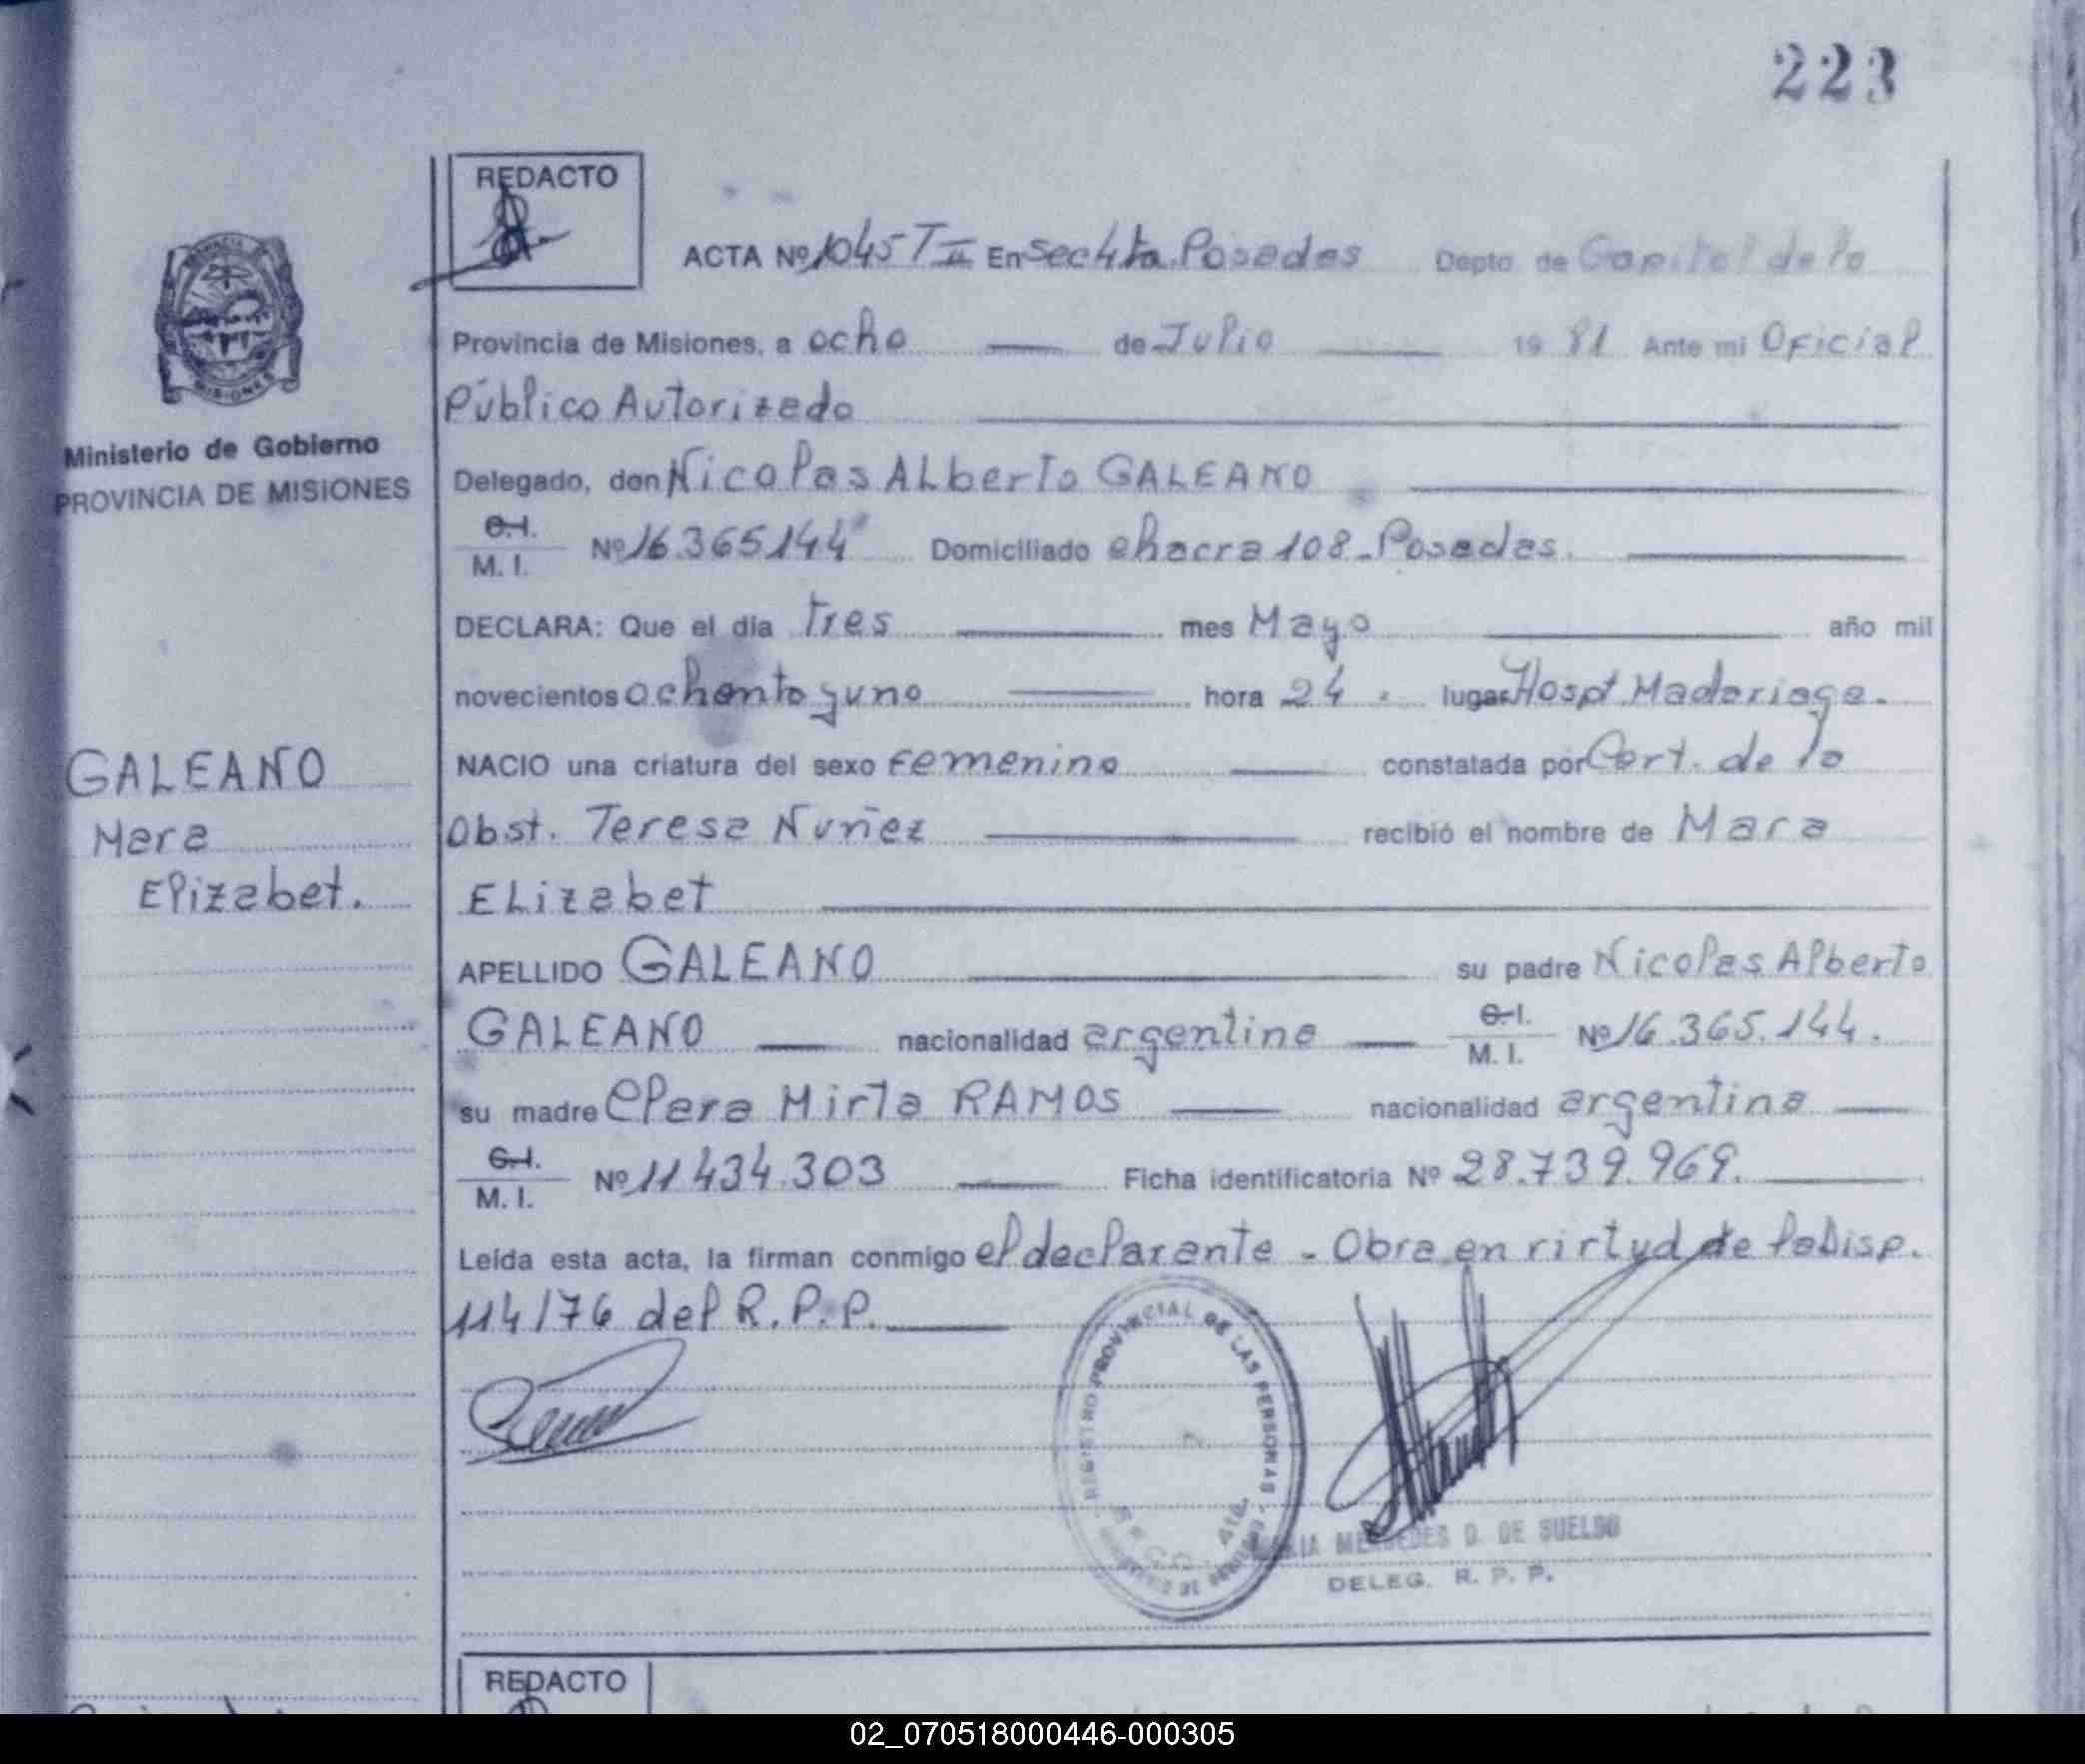 223
REDACTO
ACTA Nº 1045 T II En Sec 4ta Posadas Depto. de Capital de la
Provincia de Misiones, a ocho de Julio 19 81 Ante mi Oficial
Público Autorizado
Delegado, don Nicolas ALberto GALEANO
C.I.
M. I. Nº 16.365144 Domiciliado chacra 108 - Posadas.
DECLARA: Que el día tres mes Mayo año mil
novecientos ochenta y uno hora 24 . lugar Hospt. Madariaga.
NACIO una criatura del sexo femenino constatada por Cert. de la
Obst. Teresa Nuñez recibió el nombre de Mara
ELizabet
APELLIDO GALEANO su padre Nicolas Alberto
GALEANO nacionalidad argentino C.I.
M. I. Nº 16.365.144.
su madre Clara Mirta RAMOS nacionalidad argentina
C.I.
M. I. Nº 11434.303 Ficha identificatoria Nº 28.739.969.
Leída esta acta, la firman conmigo el declarante - Obra en virtud de la Disp.
114/76 del R.P.P.
Ministerio de Gobierno
PROVINCIA DE MISIONES
GALEANO
Mara
Elizabet.
REGISTRO PROVINCIAL DE LAS PERSONAS
SECC. 4ta.
MERCEDES D. DE SUELDO
DELEG. R. P. P.
REDACTO
02_070518000446-000305